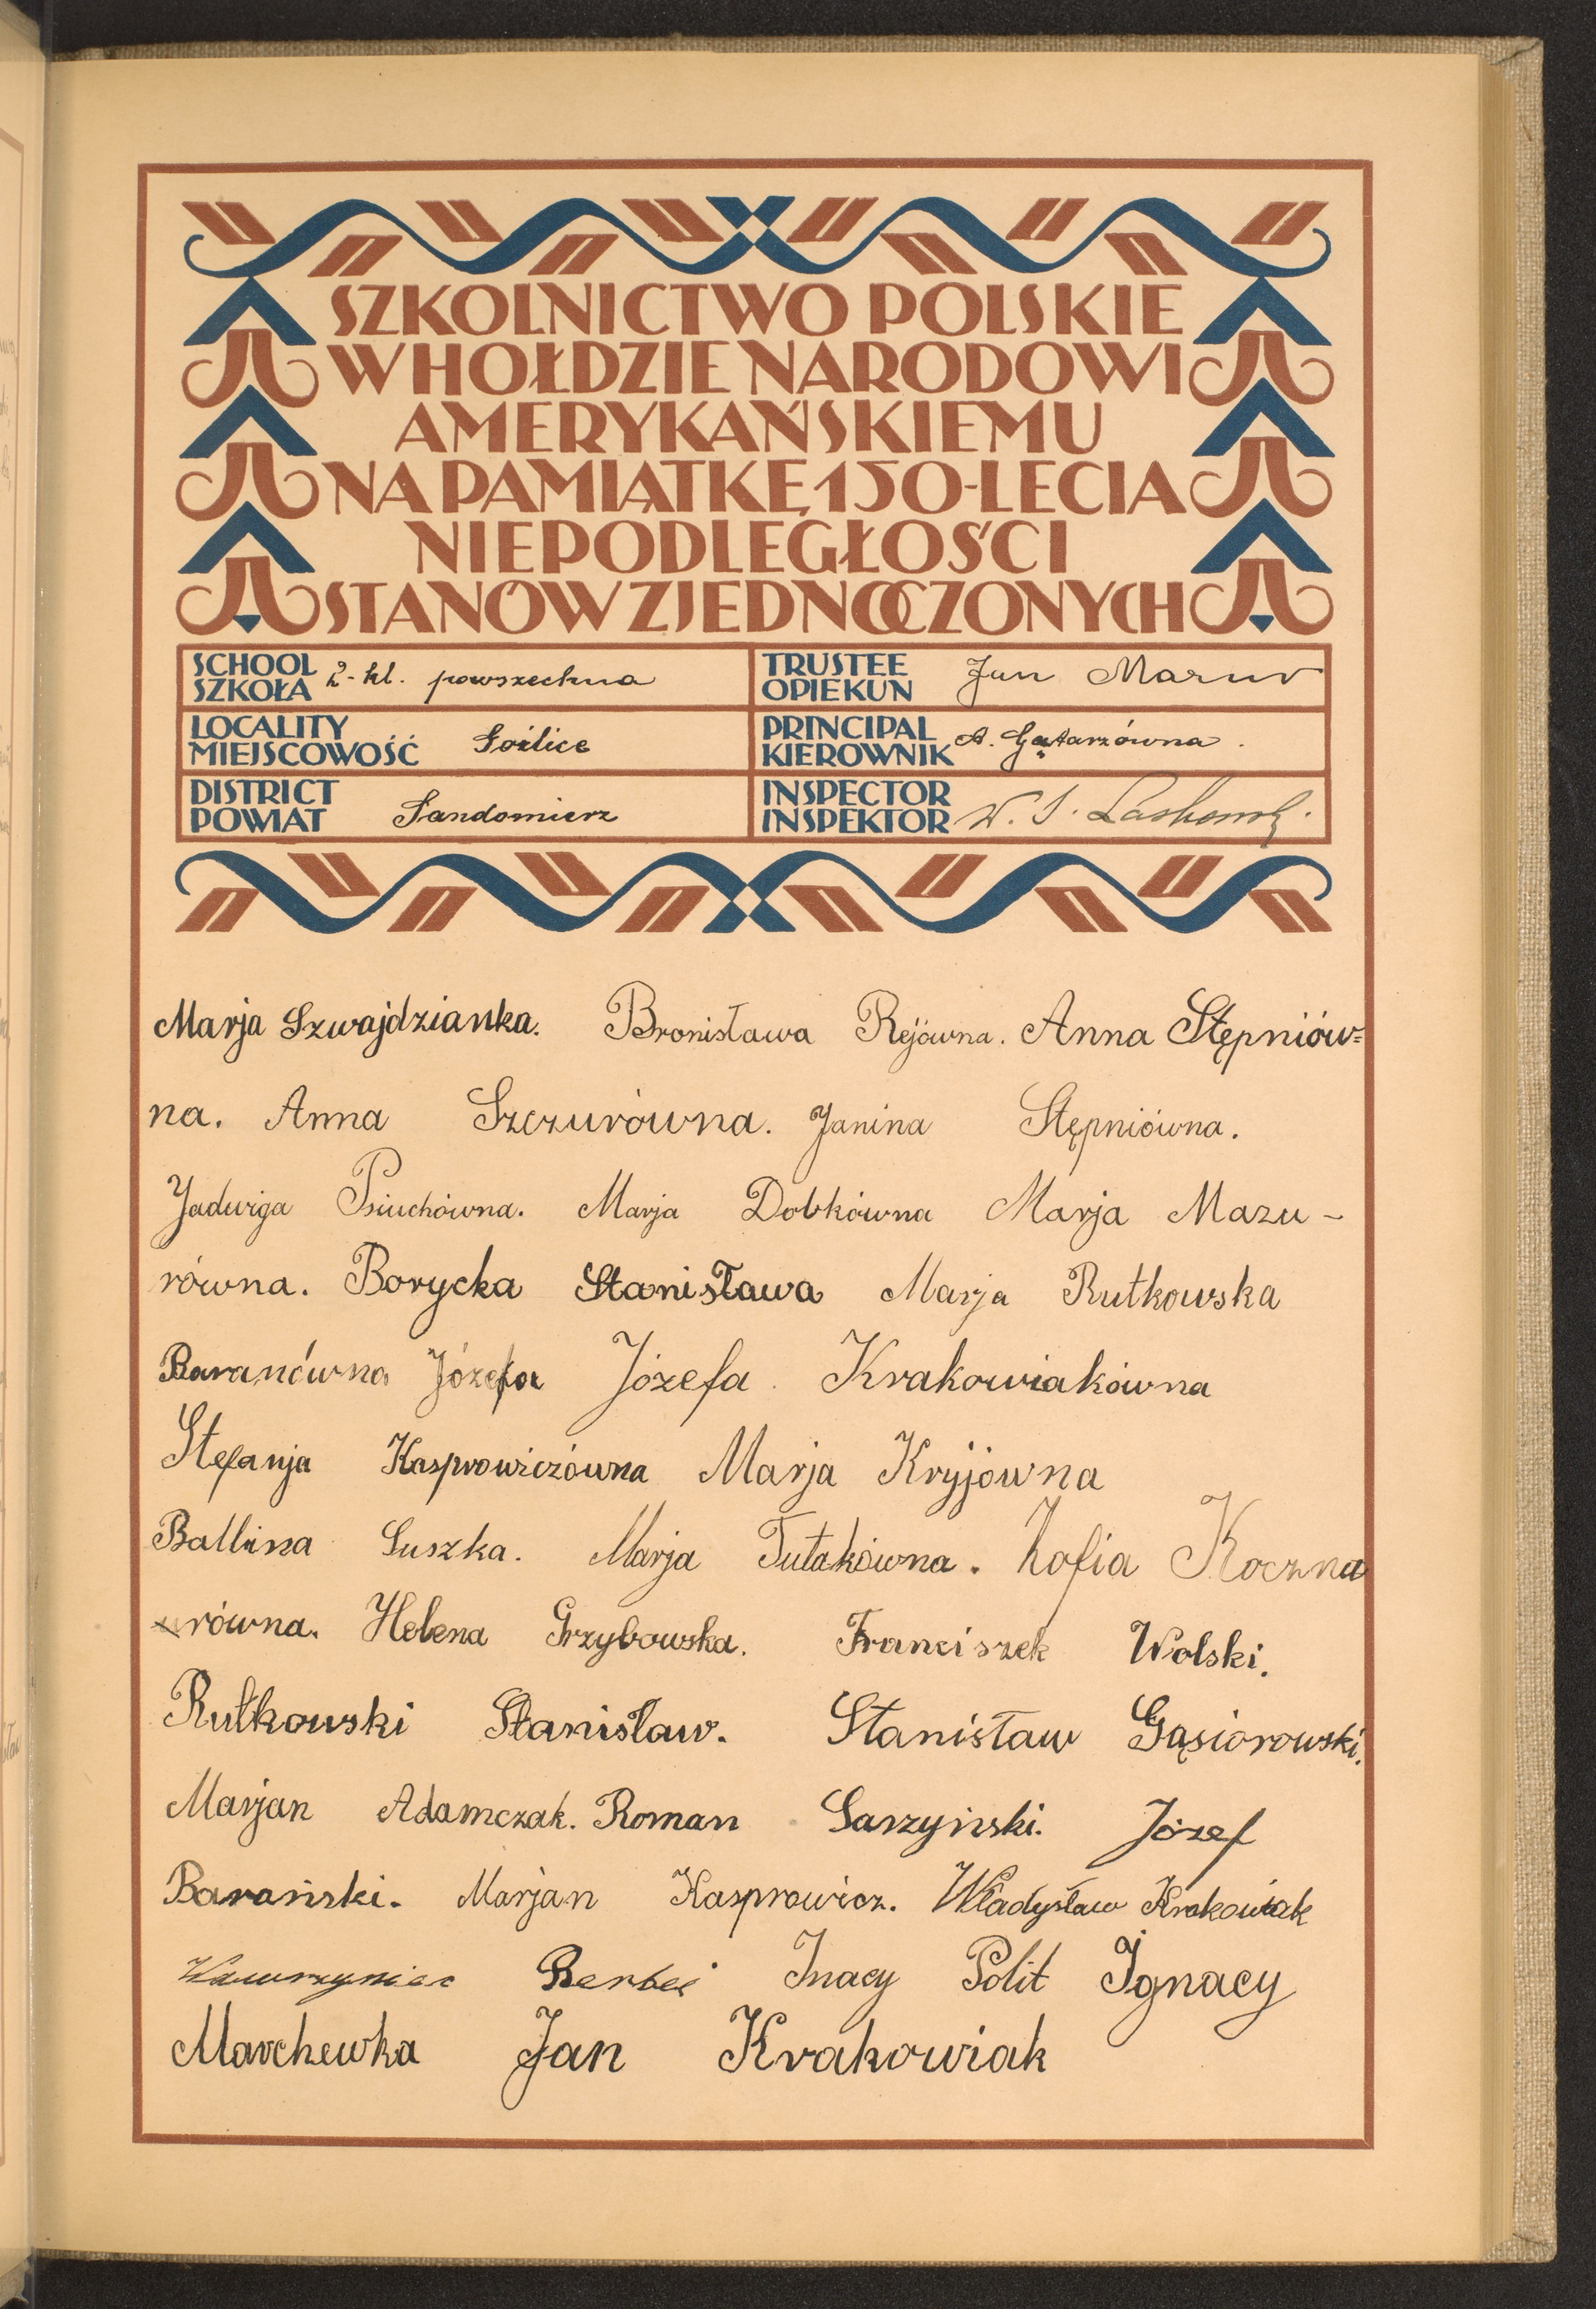 SZKOLNICTWO POLSKIE
W HOŁDZIE NARODOWI
AMERYKAŃSKIEMU
NA PAMIĄTKĘ 150-LECIA
NIEPODLEGŁOŚCI
STANÓW ZJEDNOCZONYCH
SCHOOL
SZKOŁA 2-kl. powszechna
TRUSTEE
OPIEKUN Jan Mazur
LOCALITY
MIEJSCOWOŚĆ
PRINCIPAL
KIEROWNIK A. Gątarzówna.
DISTRICT
POWIAT Sandomierz
INSPECTOR
INSPEKTOR
Marja Szwajdzianka. Bronisława Rejówna. Anna Stępniów=
na. Anna Szczurówna. Janina Stępniówna.
Jadwiga Psiuchówna. Marja Dobkówna Marja Mazu-
równa. Borycka Stanisława Marja Rutkowska
Baranówna Józefa Józefa Krakowiakówna
Stefanja Kasprowiczówna Marja Kryjówna
Ballina Luszka. Marja Tutakówna. Zofia Koczna
równa. Helena Grzybowska. Franciszek Wolski.
Rutkowski Stanisław. Stanisław Gąsiorowski.
Marjan Adamczak. Roman Sarzyński. Józef
Barański. Marjan Kasprowicz. Władysław Krakowiak
Wawrzyniec Inacy Polit Ignacy
Marchewka Jan Krakowiak